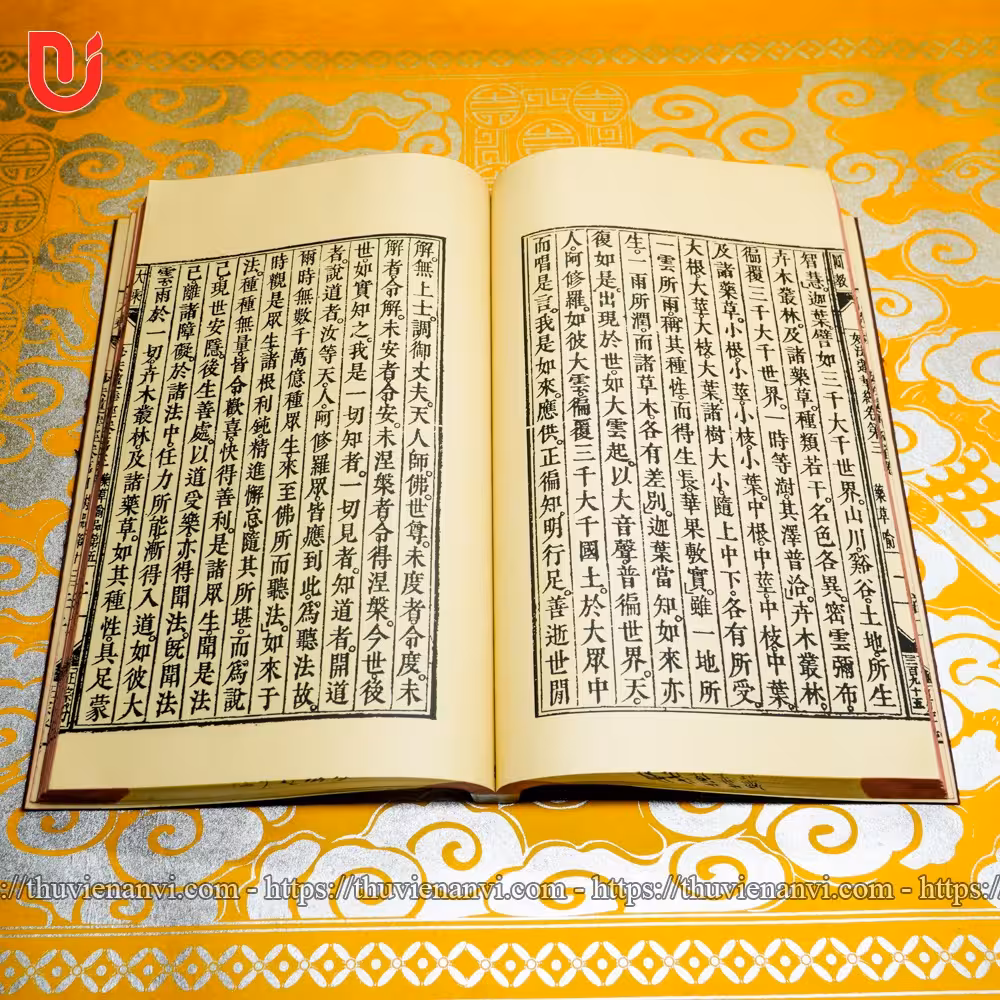 圓教
妙法蓮華經卷第三
藥草喻
三百九十五
智慧。迦葉。譬如三千大千世界。山川谿谷。土地所生
卉木叢林。及諸藥草。種類若干。名色各異。密雲彌布。
徧覆三千大千世界。一時等澍。其澤普洽。卉木叢林。
及諸藥草。小根小莖。小枝小葉。中根中莖。中枝中葉。
大根大莖。大枝大葉。諸樹大小。隨上中下。各有所受。
一雲所雨。稱其種性。而得生長。華果敷實。雖一地所
生。一雨所潤。而諸草木。各有差別。迦葉當知。如來亦
復如是。出現於世。如大雲起。以大音聲。普徧世界。天
人。阿修羅。如彼大雲。徧覆三千大千國土。於大眾中
而唱是言。我是如來。應供。正徧知。明行足。善逝世間
解。無上士。調御丈夫。天人師。佛。世尊。未度者令度。未
解者令解。未安者令安。未涅槃者令得涅槃。今世後
世。如實知之。我是一切知者。一切見者。知道者。開道
者。說道者。汝等天人阿修羅眾。皆應到此。爲聽法故。
爾時無數千萬億種眾生。來至佛所而聽法。如來于
時。觀是眾生諸根利鈍。精進懈怠。隨其所堪。而爲說
法。種種無量。皆令歡喜。快得善利。是諸眾生。聞是法
已。現世安隱。後生善處。以道受樂。亦得聞法。既聞法
已。離諸障礙。於諸法中。任力所能。漸得入道。如彼大
雲。雨於一切卉木叢林。及諸藥草。如其種性。具足蒙
https://thuvienanvi.com - https://thuvienanvi.com - https://thuvienanvi.com